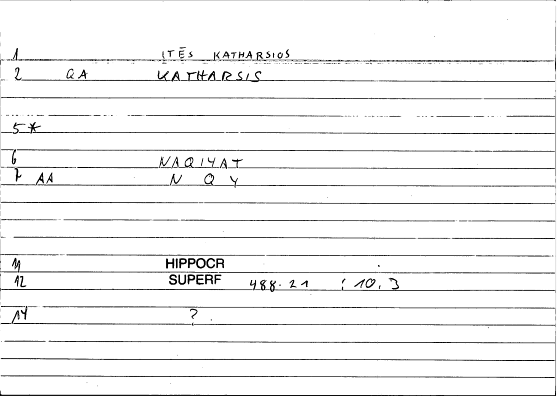 1 ITĒS KATHARSIOS
2 QA KATHARSIS
5 *
6 NAQIYAT
7 AA N Q Y
11 HIPPOCR
12 SUPERF 488.21 : 10.3
14 ?